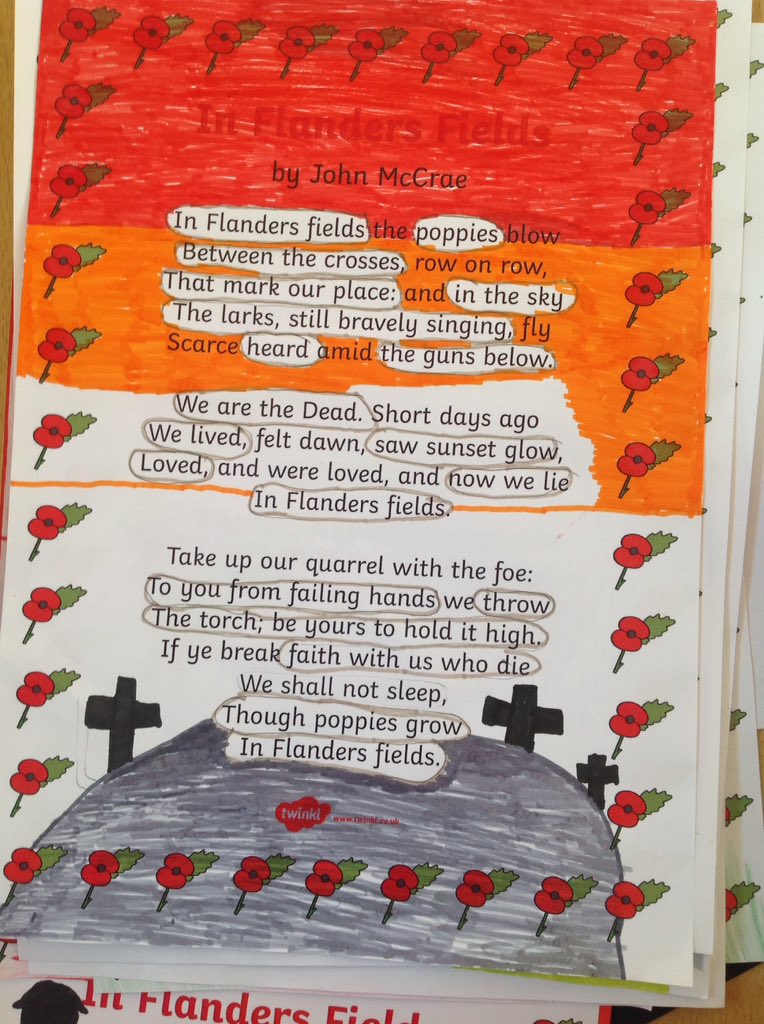 In Flanders Fields
by John McCrae
In Flanders fields the poppies blow
Between the crosses, row on row,
That mark our place: and in the sky
The larks, still bravely singing, fly
Scarce heard amid the guns below.
We are the Dead. Short days ago
We lived, felt dawn, saw sunset glow,
Loved, and were loved, and now we lie
In Flanders fields.
Take up our quarrel with the foe:
To you from failing hands we throw
The torch; be yours to hold it high.
If ye break faith with us who die
We shall not sleep,
Though poppies grow
In Flanders fields.
twinkl www.twinkl.co.uk
In Flanders Field